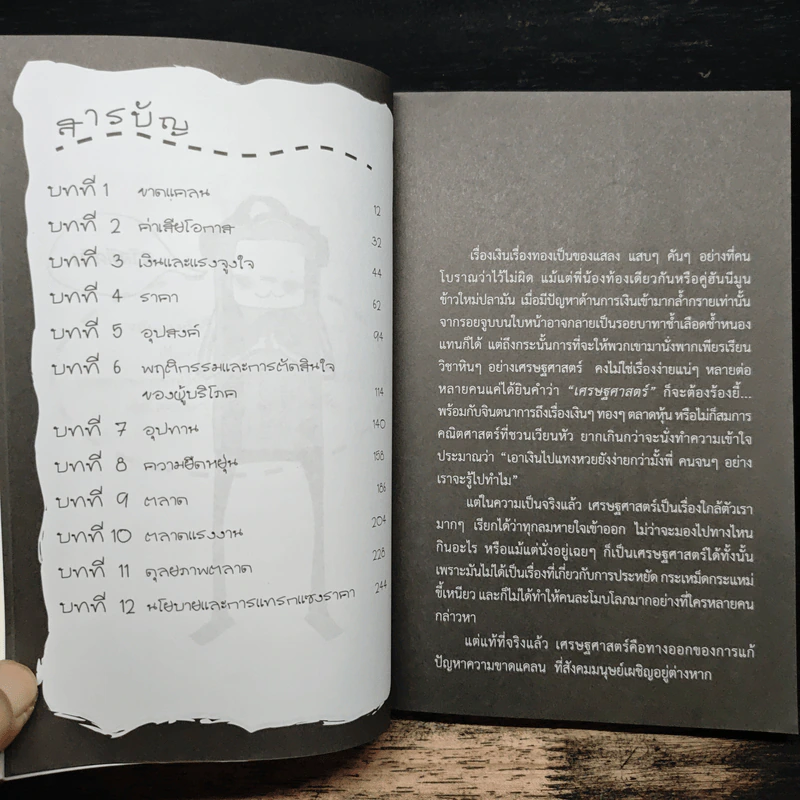 สารบัญ
บทที่ 1 ขาดแคลน 12
บทที่ 2 ค่าเสียโอกาส 32
บทที่ 3 เงินและแรงจูงใจ 44
บทที่ 4 ราคา 62
บทที่ 5 อุปสงค์ 94
บทที่ 6 พฤติกรรมและการตัดสินใจ
ของผู้บริโภค 114
บทที่ 7 อุปทาน 140
บทที่ 8 ความยืดหยุ่น 158
บทที่ 9 ตลาด 186
บทที่ 10 ตลาดแรงงาน 204
บทที่ 11 ดุลยภาพตลาด 228
บทที่ 12 นโยบายและการแทรกแซงราคา 244
เรื่องเงินเรื่องทองเป็นของแสลง แสบๆ คันๆ อย่างที่คน
โบราณว่าไว้ไม่ผิด แม้แต่พี่น้องท้องเดียวกันหรือคู่ฮันนีมูน
ข้าวใหม่ปลามัน เมื่อมีปัญหาด้านการเงินเข้ามากล้ำกรายเท่านั้น
จากรอยจูบบนใบหน้าอาจกลายเป็นรอยบาทาช้ำเลือดช้ำหนอง
แทนก็ได้ แต่ถึงกระนั้นการที่จะให้พวกเขามานั่งพากเพียรเรียน
วิชาหินๆ อย่างเศรษฐศาสตร์ คงไม่ใช่เรื่องง่ายแน่ๆ หลายต่อ
หลายคนแค่ได้ยินคำว่า “เศรษฐศาสตร์” ก็จะต้องร้องยี้...
พร้อมกับจินตนาการถึงเรื่องเงินๆ ทองๆ ตลาดหุ้น หรือไม่ก็สมการ
คณิตศาสตร์ที่ชวนเวียนหัว ยากเกินกว่าจะนั่งทำความเข้าใจ
ประมาณว่า “เอาเงินไปแทงหวยยังง่ายกว่ามั้งพี่ คนจนๆ อย่าง
เราจะรู้ไปทำไม”
แต่ในความเป็นจริงแล้ว เศรษฐศาสตร์เป็นเรื่องใกล้ตัวเรา
มากๆ เรียกได้ว่าทุกลมหายใจเข้าออก ไม่ว่าจะมองไปทางไหน
กินอะไร หรือแม้แต่นั่งอยู่เฉยๆ ก็เป็นเศรษฐศาสตร์ได้ทั้งนั้น
เพราะมันไม่ได้เป็นเรื่องที่เกี่ยวกับการประหยัด กระเหม็ดกระแหม่
ขี้เหนียว และก็ไม่ได้ทำให้คนละโมบโลภมากอย่างที่ใครหลายคน
กล่าวหา
แต่แท้ที่จริงแล้ว เศรษฐศาสตร์คือทางออกของการแก้
ปัญหาความขาดแคลน ที่สังคมมนุษย์เผชิญอยู่ต่างหาก